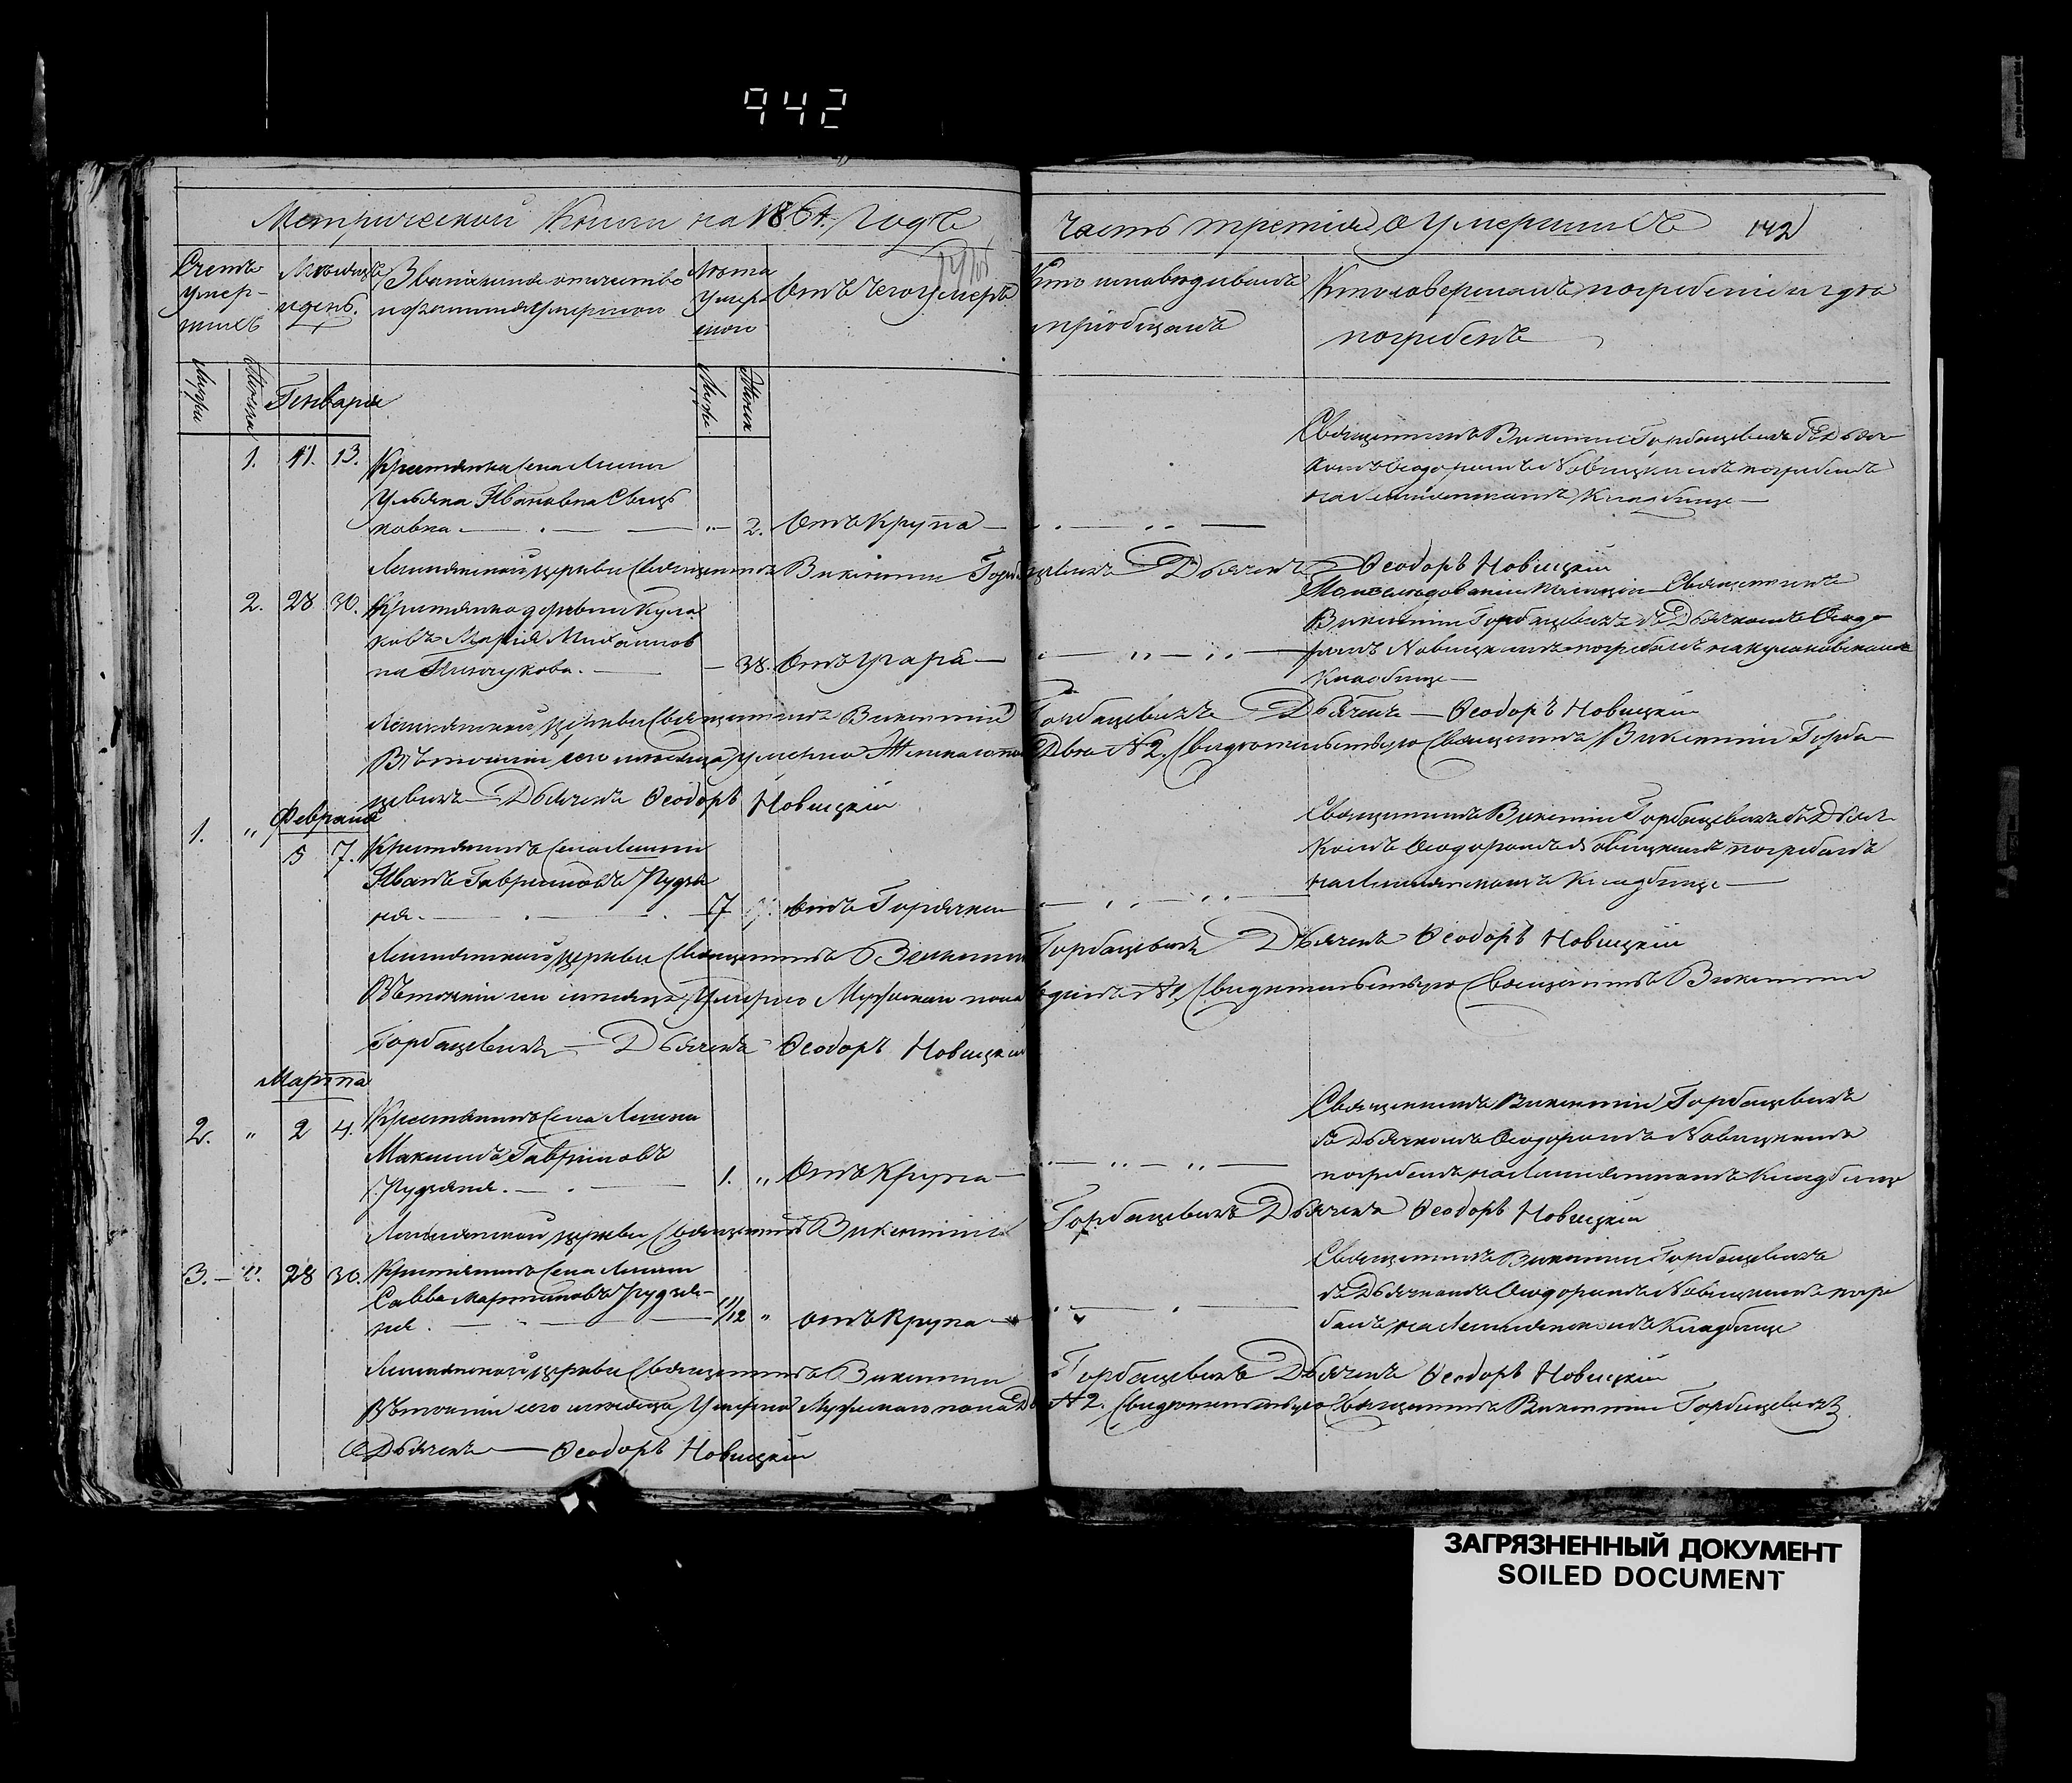 942
Метрической Книги на 1864. Годъ часть третія, о Умершихъ 142
Счетъ умер-шихъ
Мѣсяцъ и день.
Званіе, имя, отчество и фамилія умершаго
Лѣта умер-шаго
Отъ чего умеръ
Кто исповѣдывалъ и пріобщалъ
Кто совершалъ погребеніе и гдѣ погребенъ
Генваря
1. 11. 13. Крестьянка села
Ульяна Ивановна
" 2. Отъ Крупа
Священникъ Викентій Горбацевичъ съ Дьяч-
комъ Ѳеодоромъ Новицкимъ погребенъ
на кладбище
церкви Священникъ Викентій Горбацевичъ Дьячекъ Ѳеодоръ Новицкій
2. 28 30. Крестьянка деревни Кула-
ковъ Марія Михаилов
на
38. Отъ Угара
Священникъ
Викентій Горбацевичъ съ Дьячкомъ Ѳеодо
ромъ Новицкимъ погребенъ на Кулаковскомъ
Кладбище
церкви Священникъ Викентій Горбацевичъ Дьячекъ Ѳеодоръ Новицкій
Въ теченіи сего мѣсяца умерло Женска пола Двѣ № 2. Свидѣтельствую Священникъ Викентій Горба-
цевичъ Дьячекъ Ѳеодоръ Новицкій
Февраля
1. " 5 7. Крестьянинъ села
Иванъ Гавриловъ Рудзе
ня.
7 отъ Горячки
Священникъ Викентій Горбацевичъ съ Дьяч-
комъ Ѳеодоромъ Новицкимъ погребенъ
на кладбище
церкви Священникъ Викентій Горбацевичъ Дьячекъ Ѳеодоръ Новицкій
Въ теченіи сего мѣсяца Умерло Мужеска пола одинъ № 1, Свидѣтельствую Священникъ Викентій
Горбацевичъ Дьячекъ Ѳеодоръ Новицкій
Марта
2. " 2 4. Крестьянинъ села
Максимъ Гавриловъ
Рудзеня.
1. " Отъ Крупа
Священникъ Викентій Горбацевичъ
съ Дьячкомъ Ѳеодоромъ Новицкимъ
погребенъ на Кладбище
церкви Священникъ Викентій Горбацевичъ Дьячекъ Ѳеодоръ Новицкій
3. " 28 30. Крестьянинъ села
Савва Мартиновъ Рудзе-
ня.
11/12 " отъ Крупа
Священникъ Викентій Горбацевичъ
съ Дьячкомъ Ѳеодоромъ Новицкимъ погре
бенъ на Кладбище
церкви Священникъ Викентій Горбацевичъ Дьячекъ Ѳеодоръ Новицкій
Въ теченіи сего мѣсяца Умерло Мужескаго пола Два № 2. Свидѣтельствую Священникъ Викентій Горбацевичъ
Дьячекъ Ѳеодоръ Новицкій
ЗАГРЯЗНЕННЫЙ ДОКУМЕНТ
SOILED DOCUMENT